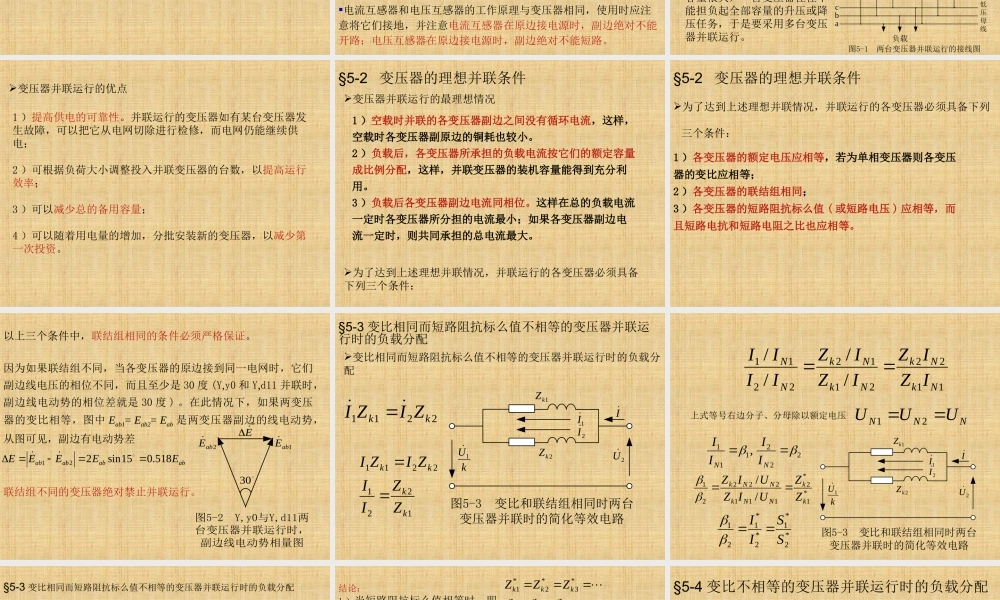 ▪电流互感器和电压互感器的工作原理与变压器相同，使用时应注
意将它们接地，并注意电流互感器在原边接电源时，副边绝对不能
开路；电压互感器在原边接电源时，副边绝对不能短路。
能担负起全部容量的升压或降
压任务，于是要采用多台变压
器并联运行。
c
b
a
低
压
母
线
负载
图5-1 两台变压器并联运行的接线图
➢变压器并联运行的优点
1 ）提高供电的可靠性。并联运行的变压器如有某台变压器发
生故障，可以把它从电网切除进行检修，而电网仍能继续供
电；
2 ）可根据负荷大小调整投入并联变压器的台数，以提高运行
效率；
3 ）可以减少总的备用容量；
4 ）可以随着用电量的增加，分批安装新的变压器，以减少第
一次投资。
§5-2 变压器的理想并联条件
➢变压器并联运行的最理想情况
1 ）空载时并联的各变压器副边之间没有循环电流，这样，
空载时各变压器副原边的铜耗也较小。
2 ）负载后，各变压器所承担的负载电流按它们的额定容量
成比例分配，这样，并联变压器的装机容量能得到充分利
用。
3 ）负载后各变压器副边电流同相位。这样在总的负载电流
一定时各变压器所分担的电流最小；如果各变压器副边电
流一定时，则共同承担的总电流最大。
➢为了达到上述理想并联情况，并联运行的各变压器必须具备
下列三个条件：
§5-2 变压器的理想并联条件
➢为了达到上述理想并联情况，并联运行的各变压器必须具备下列
三个条件：
1 ）各变压器的额定电压应相等，若为单相变压器则各变压
器的变比应相等；
2 ）各变压器的联结组相同；
3 ）各变压器的短路阻抗标么值 ( 或短路电压 ) 应相等，而
且短路电抗和短路电阻之比也应相等。
以上三个条件中，联结组相同的条件必须严格保证。
因为如果联结组不同，当各变压器的原边接到同一电网时，它们
副边线电压的相位不同，而且至少是 30 度 (Y,y0 和 Y,d11 并联时，
副边线电动势的相位差就是 30 度 ) 。在此情况下，如果两变压
器的变比相等，图中 Eab1= Eab2= Eab 是两变压器副边的线电动势，
从图可见，副边有电动势差
ΔE = |Ėab1 − Ėab2| = 2Eab sin15° = 0.518Eab
ΔĖ
Ėab2
Ėab1
30°
联结组不同的变压器绝对禁止并联运行。
图5-2 Y,y0与Y,d11两
台变压器并联运行时，
副边线电动势相量图
§5-3 变比相同而短路阻抗标么值不相等的变压器并联运
行时的负载分配
➢变比相同而短路阻抗标么值不相等的变压器并联运行时的负载分
配
İ1Zk1 = İ2Zk2
I1Zk1 = I2Zk2
I1/I2 = Zk2/Zk1
Zk1
İ1
İ2
İ
Zk2
U̇1/k
U̇2
图5-3 变比和联结组相同时两台
变压器并联时的简化等效电路
(I1 / IN1)/(I2 / IN2) = (Zk2 / IN1)/(Zk1 / IN2) = (Zk2IN2)/(Zk1IN1)
上式等号右边分子、分母除以额定电压 UN1 = UN2 = UN
I1/IN1 = β1, I2/IN2 = β2
β1/β2 = (Zk2IN2 / UN2)/(Zk1IN1 / UN1) = Z*k2/Z*k1
β1/β2 = I*1/I*2 = S*1/S*2
Zk1
İ1
İ2
İ
Zk2
U̇1/k
U̇2
图5-3 变比和联结组相同时两台
变压器并联时的简化等效电路
§5-3 变比相同而短路阻抗标么值不相等的变压器并联运行时的负载分配
结论：
Z*k1 = Z*k2 = Z*k3 = ⋯
§5-4 变比不相等的变压器并联运行时的负载分配